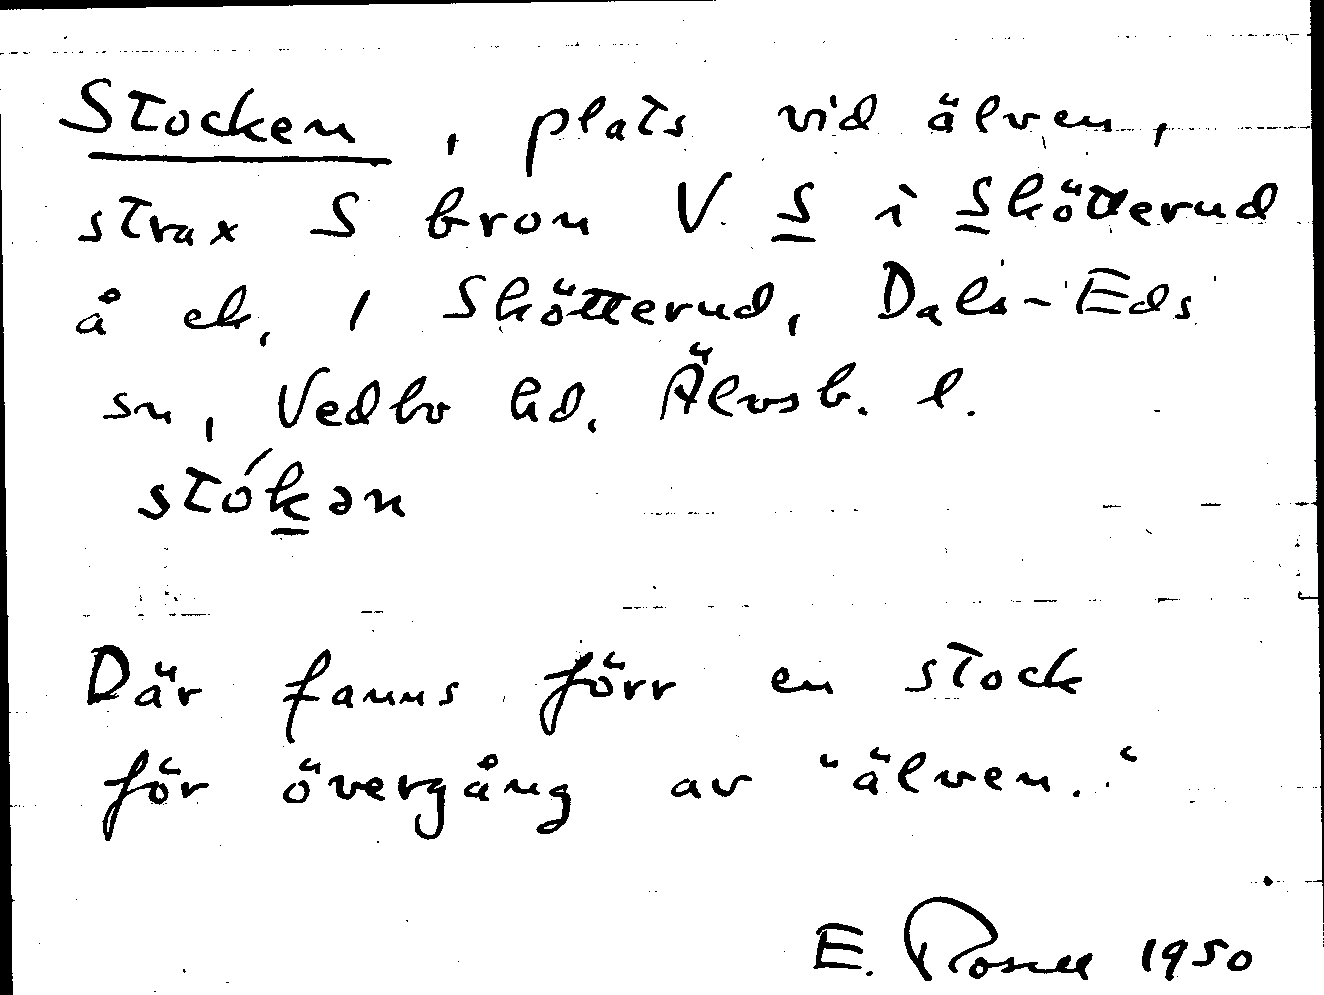 Stocken, plats vid älven,
strax S bron V. S i Skötterud
å ek. 1 Skötterud, Dals-Eds
sn, Vedbo hd. Älvsb. l.
stókən
Där fanns förr en stock
för övergång av "älven."
E. Rosell 1950